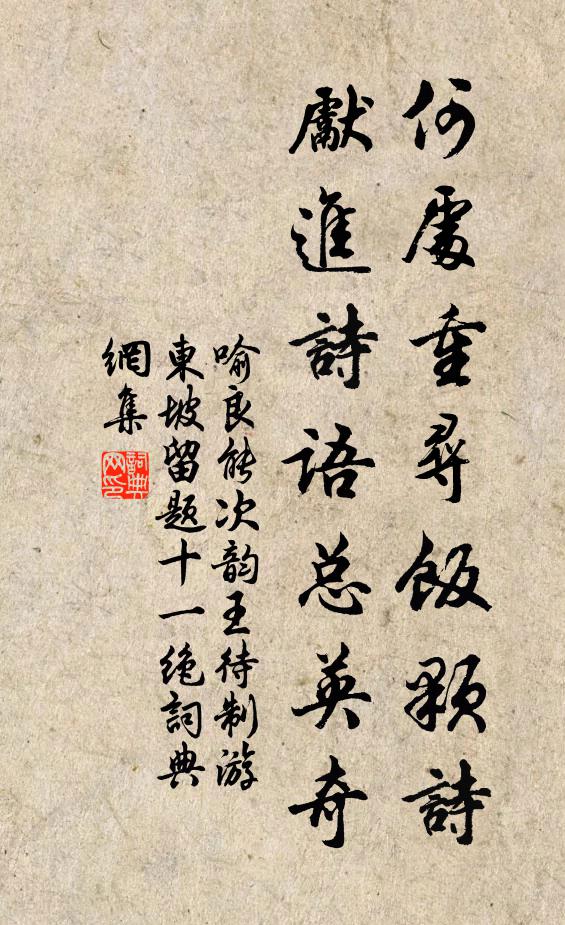 何處重尋飯顆詩
獻進詩語总英奇
喻良能次韵王待制游
東坡留题十一絶詞典
網集
詞典
网印